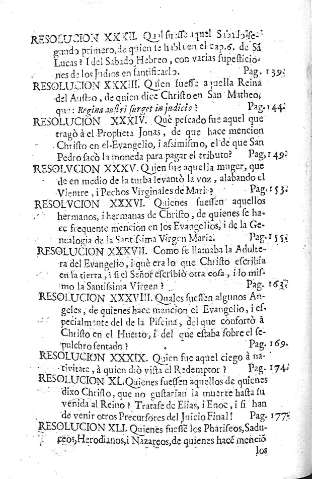 RESOLUCION XXXII. Qual fuesse aquel Sabado se-
gundo primero, de quien se habla en el cap. 6. de Sã
Lucas? I del Sabado Hebreo, con varias superſticio
nes de los Judios en ſantificarlo. Pag. 139.
RESOLUCION XXXIII. Quien fueſſe aquella Reina
del Auſtro, de quien dice Chriſto en San Matheo,
que Regina auſtri ſurget in judicio? Pag. 144.
RESOLUCION XXXIV. Què peſcado fue aquel que
tragò à el Propheta Jonas, de que hace mencion
Chriſto en el Evangelio, i aſsimiſmo, el de que San
Pedro ſacò la moneda para pagar el tributo? Pag. 149.
RESOLVCION XXXV. Quien fue aquella muger, que
de en medio de la turba levantò la voz, alabando el
Vientre, i Pechos Virginales de Maria? Pag. 153.
RESOLVCION XXXVI. Quienes fueſſen aquellos
hermanos, i hermanas de Chriſto, de quienes ſe ha-
ce frequente mencion en los Evangelios, i de la Ge-
nealogia de la Santiſsima Virgen Maria. Pag. 155.
RESOLUCION XXXVII. Como ſe llamaba la Adulte-
ra del Evangelio, i què era lo que Chriſto eſcribia
en la tierra, i ſi el Señor eſcribiò otra coſa, i lo miſ-
mo la Santiſsima Virgen? Pag. 163.
RESOLUCION XXXVIII. Quales fueſſen algunos An-
geles, de quienes hace mencion el Evangelio, i eſ-
pecialmente del de la Piſcina, del que confortò à
Chriſto en el Huerto, i del que eſtaba ſobre el ſe-
pulchro ſentado? Pag. 169.
RESOLUCION XXXIX. Quien fue aquel ciego à na-
tivitate, à quien diò viſta el Redemptor? Pag. 174.
RESOLUCION XL. Quienes fueſſen aquellos de quienes
dixo Chriſto, que no guſtarian la muerte haſta ſu
venida al Reino? Trataſe de Elias, i Enoc, i ſi han
de venir otros Precurſores del Juicio Final? Pag. 177.
RESOLUCION XLI. Quienes fueſſen los Phariſeos, Sadu-
ceos, Herodianos, i Nazareos, de quienes hace menciõ
los